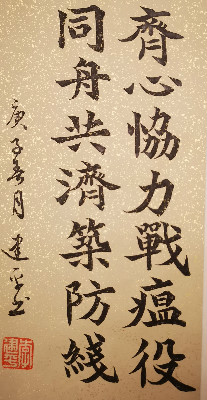 齊心協力戰瘟役
同舟共濟築防綫
庚子春月建平書